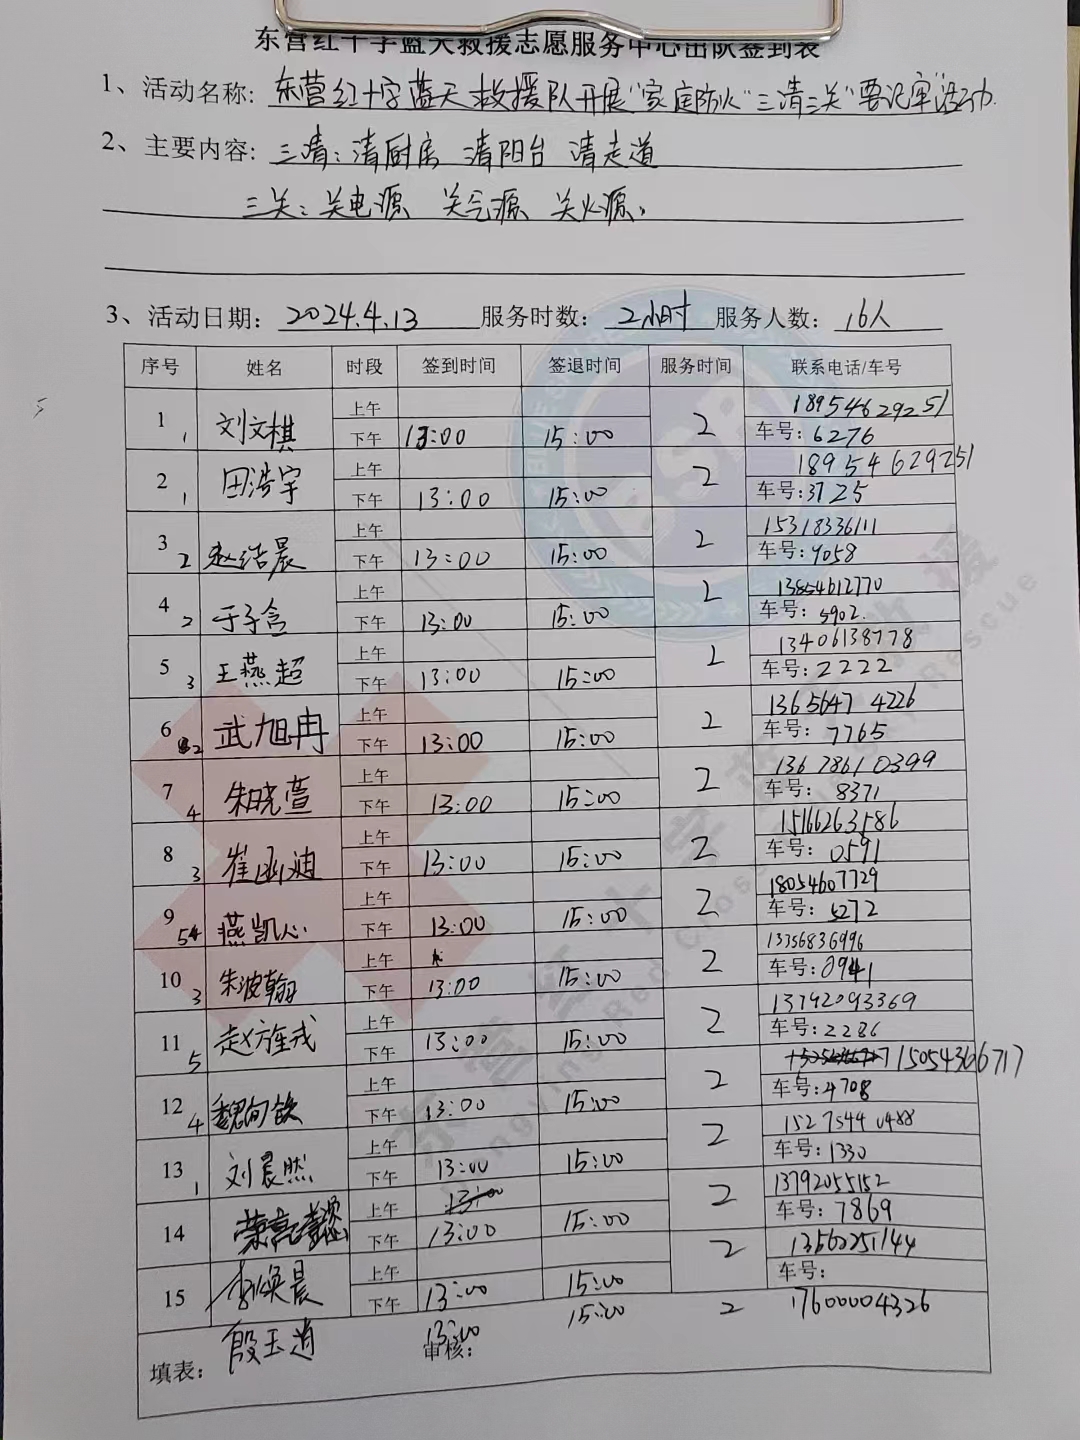 东营红十字蓝天救援志愿服务中心出队签到表
1、活动名称: 东营红十字蓝天救援队开展"家庭防火"三清三关"要记牢"活动.
2、主要内容: 三清：清厨房 清阳台 清走道
三关：关电源 关气源 关火源。
3、活动日期: 2024.4.13 服务时数: 2小时 服务人数: 16人
序号 姓名 时段 签到时间 签退时间 服务时间 联系电话/车号
上午 18954629251
1 1 刘文棋 2
下午 13:00 15:00 车号: 6276
上午 18954629251
2 1 田浩宇 2
下午 13:00 15:00 车号: 3725
上午 15318336111
3 2 赵浩晨 2
下午 13:00 15:00 车号: 9058
上午 13854612770
4 2 于子含 2
下午 13:00 15:00 车号: 5902.
上午 13406138778
5 3 王燕超 2
下午 13:00 15:00 车号: 2222
上午 13656474226
6 2 武旭冉 2
下午 13:00 15:00 车号: 7765
上午 13678610399
7 4 朱晓萱 2
下午 13:00 15:00 车号: 8371
上午 15166263586
8 3 崔函迪 2
下午 13:00 15:00 车号: 0591
上午 18054607729
9 54 燕凯心 2
下午 13:00 15:00 车号: 5272
上午 13356836996
10 3 朱波翰 2
下午 13:00 15:00 车号: 0941
上午 13792093369
11 5 赵 2
下午 13:00 15:00 车号: 2286
上午 15054366717
12 4 魏 2
下午 13:00 15:00 车号: 4708
上午 15275440488
13 1 刘晨然 2
下午 13:00 15:00 车号: 1330
上午 13:00 13792055152
14 荣 2
下午 13:00 15:00 车号: 7869
上午 13562251144
15 李焕晨 2
下午 13:00 15:00 车号:
殷玉逍 13:00 15:00 2 17600004326
填表: 审核: